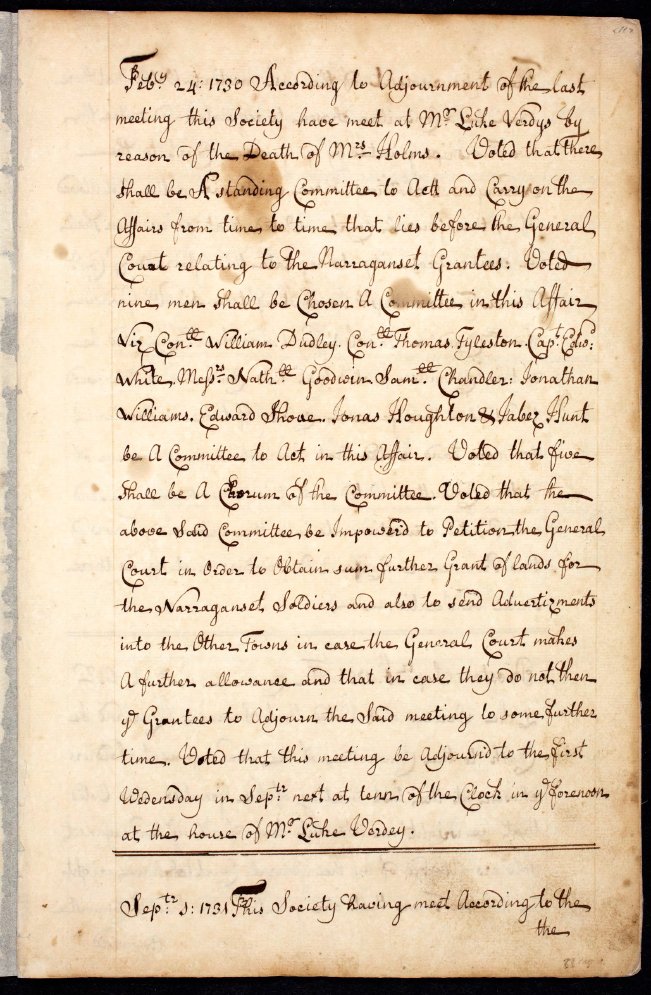 Feb.y 24: 1730 According to Adjournment of the last
meeting this Society have meet at Mr. Luke Verdys by
reason of the Death of Mrs. Holms. Voted that there
shall be A standing Committee to Act and Carry on the
Affairs from time to time that lies before the General
Court relating to the Narraganset Grantees. Voted
nine men shall be Chosen A Committee in this Affair
Viz Con.ll William Dudley. Con.ll Thomas Fyleston Cap.t Edw.d:
White, Messrs. Nath.ll Goodwin Sam.ll Chandler: Jonathan
Williams. Edward Shove. Jonas Houghton & Jabez Hunt
be A Committee to Act in this Affair. Voted that five
shall be A Chorum of the Committee. Voted that the
above Said Committee be Impowerd to Petition the General
Court in Order to Obtain sum further Grant of lands for
the Narraganset Soldiers and also to send Advertizments
into the Other Towns in case the General Court makes
A further allowance and that in case they do not then
ye Grantees to Adjourn the Said meeting to some further
time. Voted that this meeting be Adjournd to the first
Wedensday in Sep.tr next at tenn of the Clock in ye forenoon
at the house of Mr. Luke Verdey.
Sep.tr 1: 1731 This Society having meet According to the
the